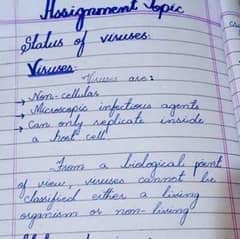 Assignment Topic
Status of viruses:
Viruses:
Viruses are:
→ Non-cellular
→ Microscopic infectious agents
→ Can only replicate inside
a host cell
From a biological point
of view, viruses cannot be
classified either a living
organism or non-living